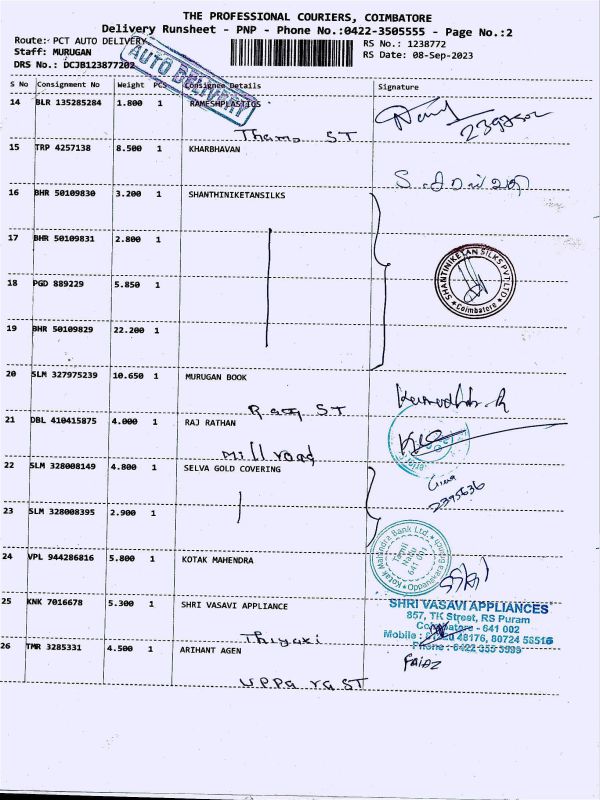 THE PROFESSIONAL COURIERS, COIMBATORE
Delivery Runsheet - PNP - Phone No.:0422-3505555 - Page No.:2
Route: PCT AUTO DELIVERY
RS No.: 1238772
Staff: MURUGAN
RS Date: 08-Sep-2023
DRS No.: DCJB123877202
AUTO DELIVERY
S No Consignment No Weight PCS Consignee Details Signature
14 BLR 135285284 1.800 1 RAMESHPLASTICS
Thoma ST
15 TRP 4257138 8.500 1 KHARBHAVAN
16 BHR 50109830 3.200 1 SHANTHINIKETANSILKS
17 BHR 50109831 2.800 1
SHANTINIKETAN SILKS PVT LTD
Coimbatore
18 PGD 889229 5.850 1
19 BHR 50109829 22.200 1
20 SLM 327975239 10.650 1 MURUGAN BOOK
ST
21 DBL 410415875 4.000 1 RAJ RATHAN
Mill road
22 SLM 328008149 4.800 1 SELVA GOLD COVERING
2395636
23 SLM 328008395 2.900 1
Kotak Mahendra Bank Ltd.
Tamil
Nadu
641 001
24 VPL 944286816 5.800 1 KOTAK MAHENDRA
25 KNK 7016678 5.300 1 SHRI VASAVI APPLIANCE
SHRI VASAVI APPLIANCES
857, TK Street, RS Puram
Coimbatore - 641 002
Thiyaxi
Mobile : 48176, 80724 58516
Phone : 0422 355 3999
26 TMR 3285331 4.500 1 ARIHANT AGEN
FAIAZ
UPPara ST